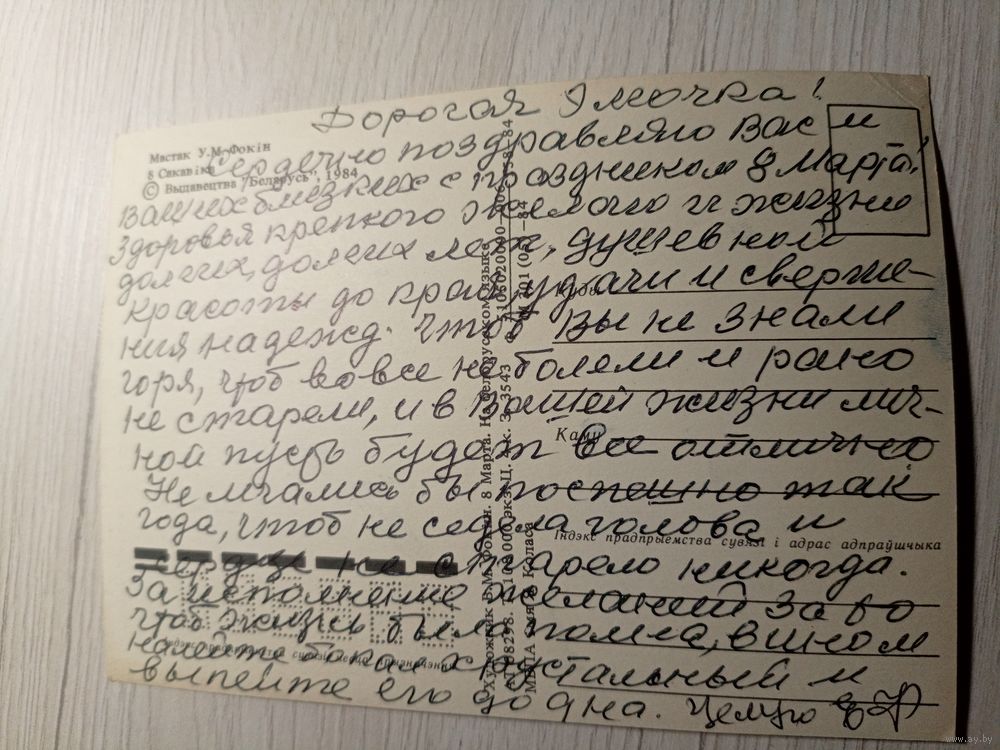 Дорогая Эмочка!
Мастак У.М. Фокін
8 Сакавіка
© Выдавецтва "Беларусь", 1984
Сердечно поздравляю Вас и
Ваших близких с праздником 8 Марта!
Здоровья крепкого желаю и жизни
долгих, долгих лет, душевной
красоты до краёв, удачи и сверше-
ния надежд. Чтоб Вы не знали
горя, чтоб вовсе не болели и рано
не старели, и в Вашей жизни лич-
ной пусть будет все отлично
Не мчались бы поспешно так
года, чтоб не седела голова и
сердце не старело никогда.
За исполнение желаний за то
чтоб жизнь была полна, вином
налейте бокал хрустальный и
выпейте его до дна. Целую
Куды
Каму
Індэкс прадпрыемства сувязі і адрас адпраўшчыка
Художник В.М. Фокин. 8 Марта. На белорусском языке
www.ay.by